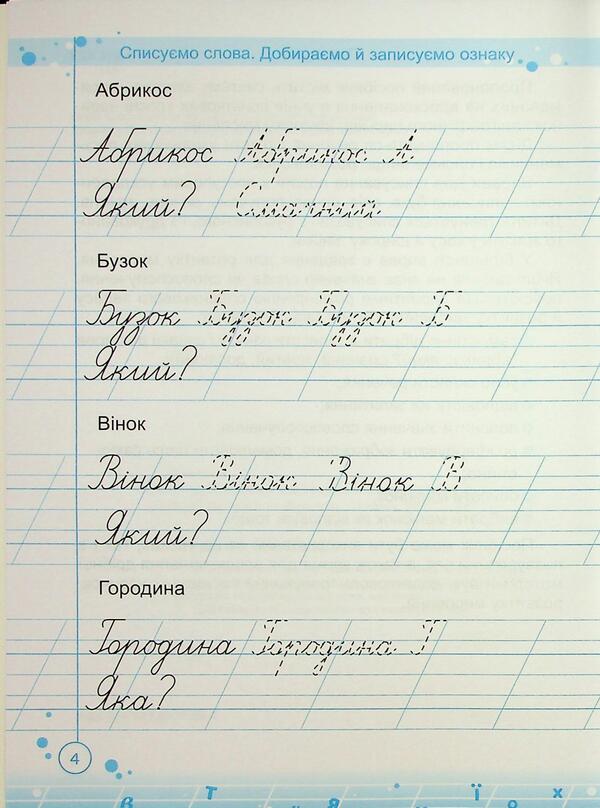 Списуємо слова. Добираємо й записуємо ознаку
Абрикос
Абрикос Абрикос А
Який? Смачний
Бузок
Бузок Бузок Бузок Б
Який?
Вінок
Вінок Вінок Вінок В
Який?
Городина
Городина Городина Г
Яка?
4
в т я ї о х